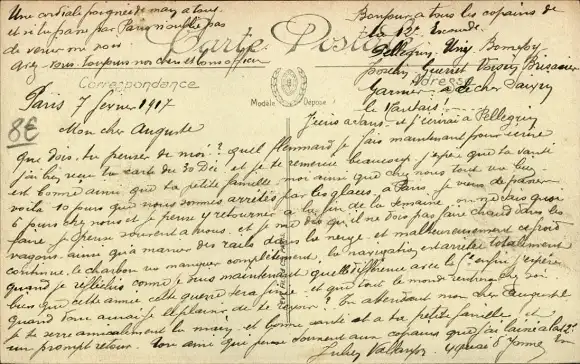 Une cordiale poignée de main à tous.
et si tu passe par Paris n'oublie pas
de venir me voir
Avez-vous toujours nos chers et bons officiers
Bonjour à tous les copains de
la 12e Escouade.
Pellegrin Bompoy
Gueret Voisin
Garnier
le Nantais!
J'écris à Sans et j'écrirai à Pellegrin
Carte Postale
Correspondance
Adresse
Modèle Déposé
8€
Paris 7 février 1917
Mon cher Auguste
Que dois-tu penser de moi? quel flemmard je fais maintenant pour écrire
j'ai bien reçu ta carte du 30 Déc et je te remercie beaucoup. j'espère que ta santé
est bonne ainsi que ta petite famille, moi ainsi que chez nous tout va bien
voilà 10 jours que nous sommes arrêtés par les glaces, à Paris. je viens de passer
5 jours chez nous et je pense y retourner à la fin de la semaine, on ne sais quoi
faire je pense souvent à vous et je me dis qu'il ne dois pas faire chaud dans les
wagons ainsi qu'à manier des rails dans la neige et malheureusement ce froid
continue, le charbon va manquer complètement, la navigation est arrêtée totalement
quand je réfléchis comme je suis maintenant quelle différence avec la Cie enfin j'espère
bien que cette année cette guerre sera finie et que tout le monde rentrera chez soi
quand donc aurai-je le plaisir de te revoir? En attendant mon cher Auguste
je te serre amicalement la main, et bonne santé et à ta petite famille et
un prompt retour. Ton ami qui pense souvent aux copains que j'ai laissé à la 12e
Julien